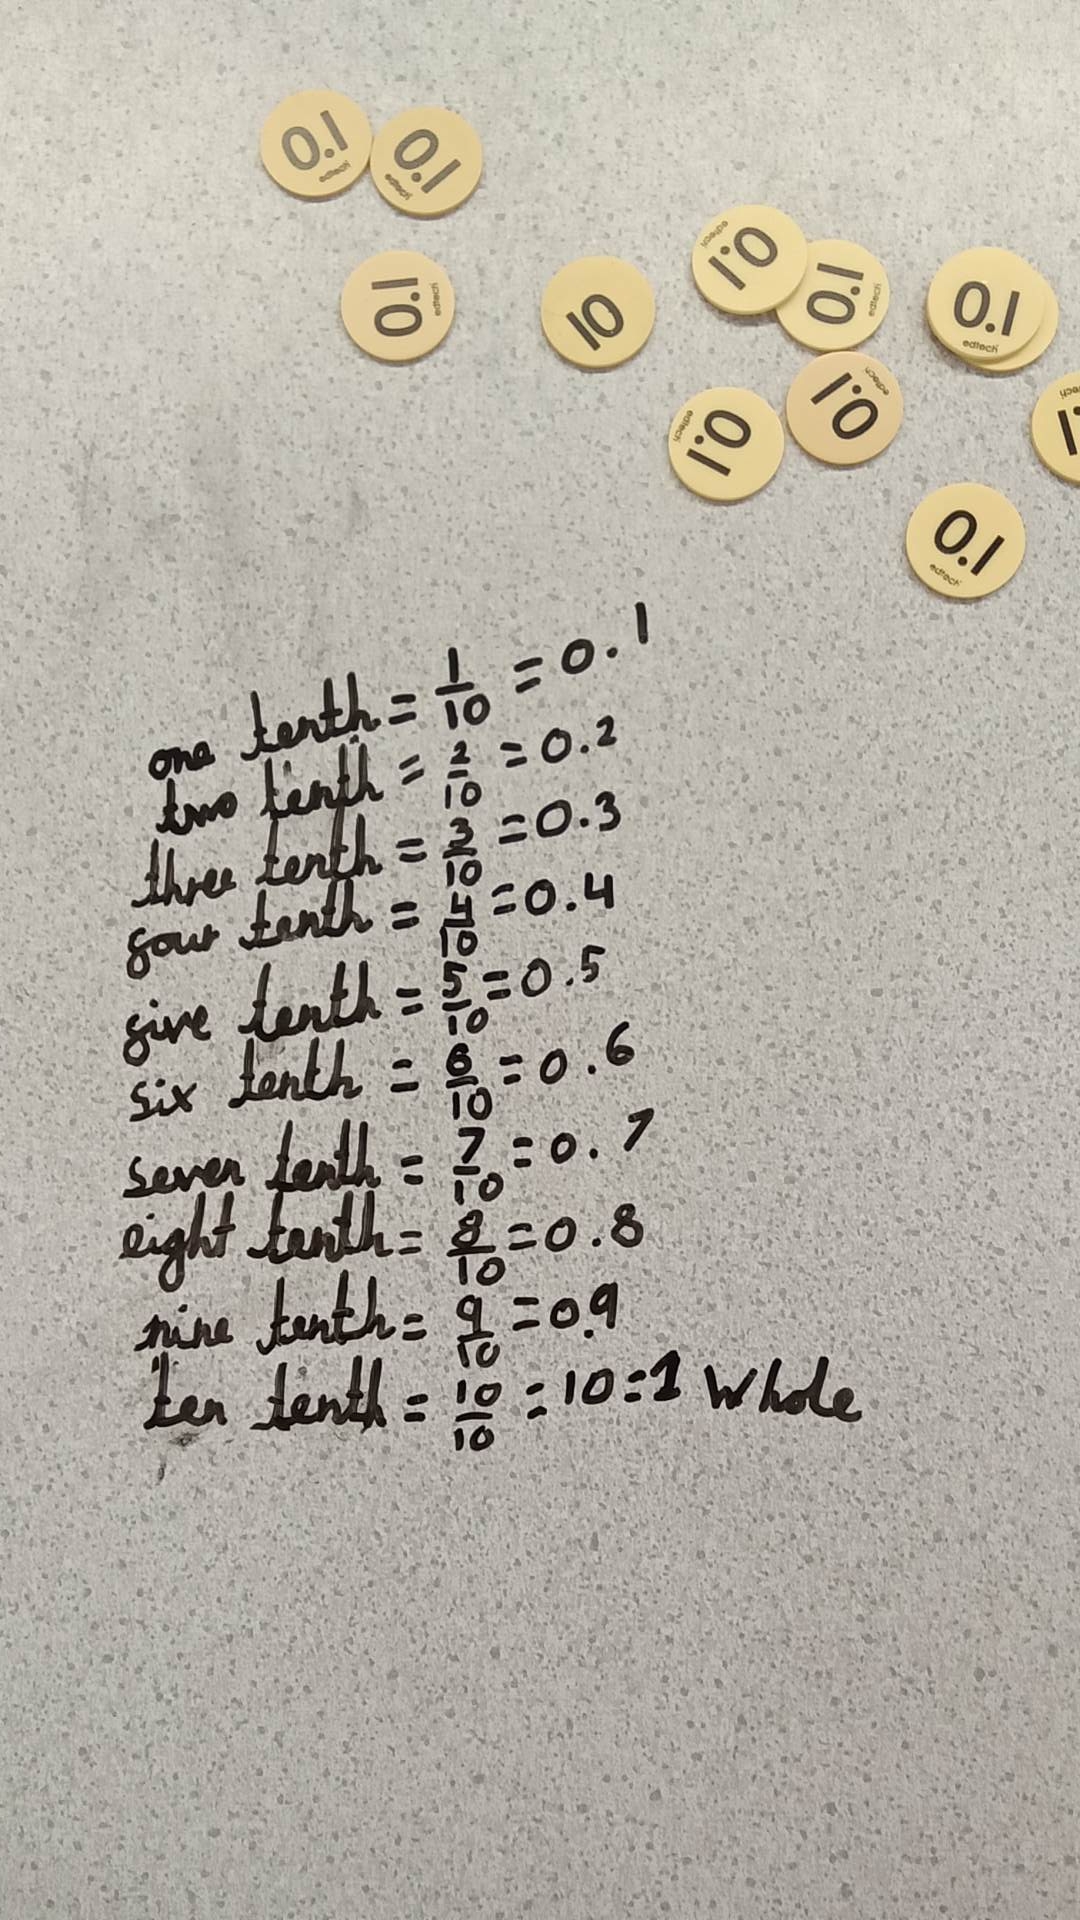 0.1 edtech
0.1 edtech
0.1 edtech
10
0.1 edtech
0.1 edtech
0.1 edtech
0.1 edtech
0.1 edtech
0.1 edtech
one tenth = 1/10 = 0.1
two tenth = 2/10 = 0.2
three tenth = 3/10 = 0.3
four tenth = 4/10 = 0.4
five tenth = 5/10 = 0.5
six tenth = 6/10 = 0.6
seven tenth = 7/10 = 0.7
eight tenth = 8/10 = 0.8
nine tenth = 9/10 = 0.9
ten tenth = 10/10 = 10 = 1 whole